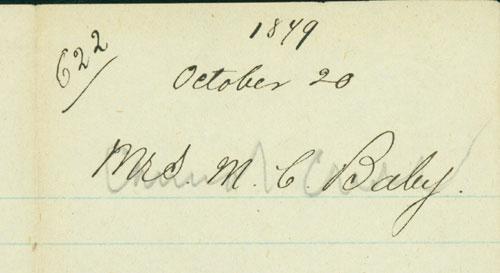 1879
622/
October 20
Mrs. M. C. Baby.